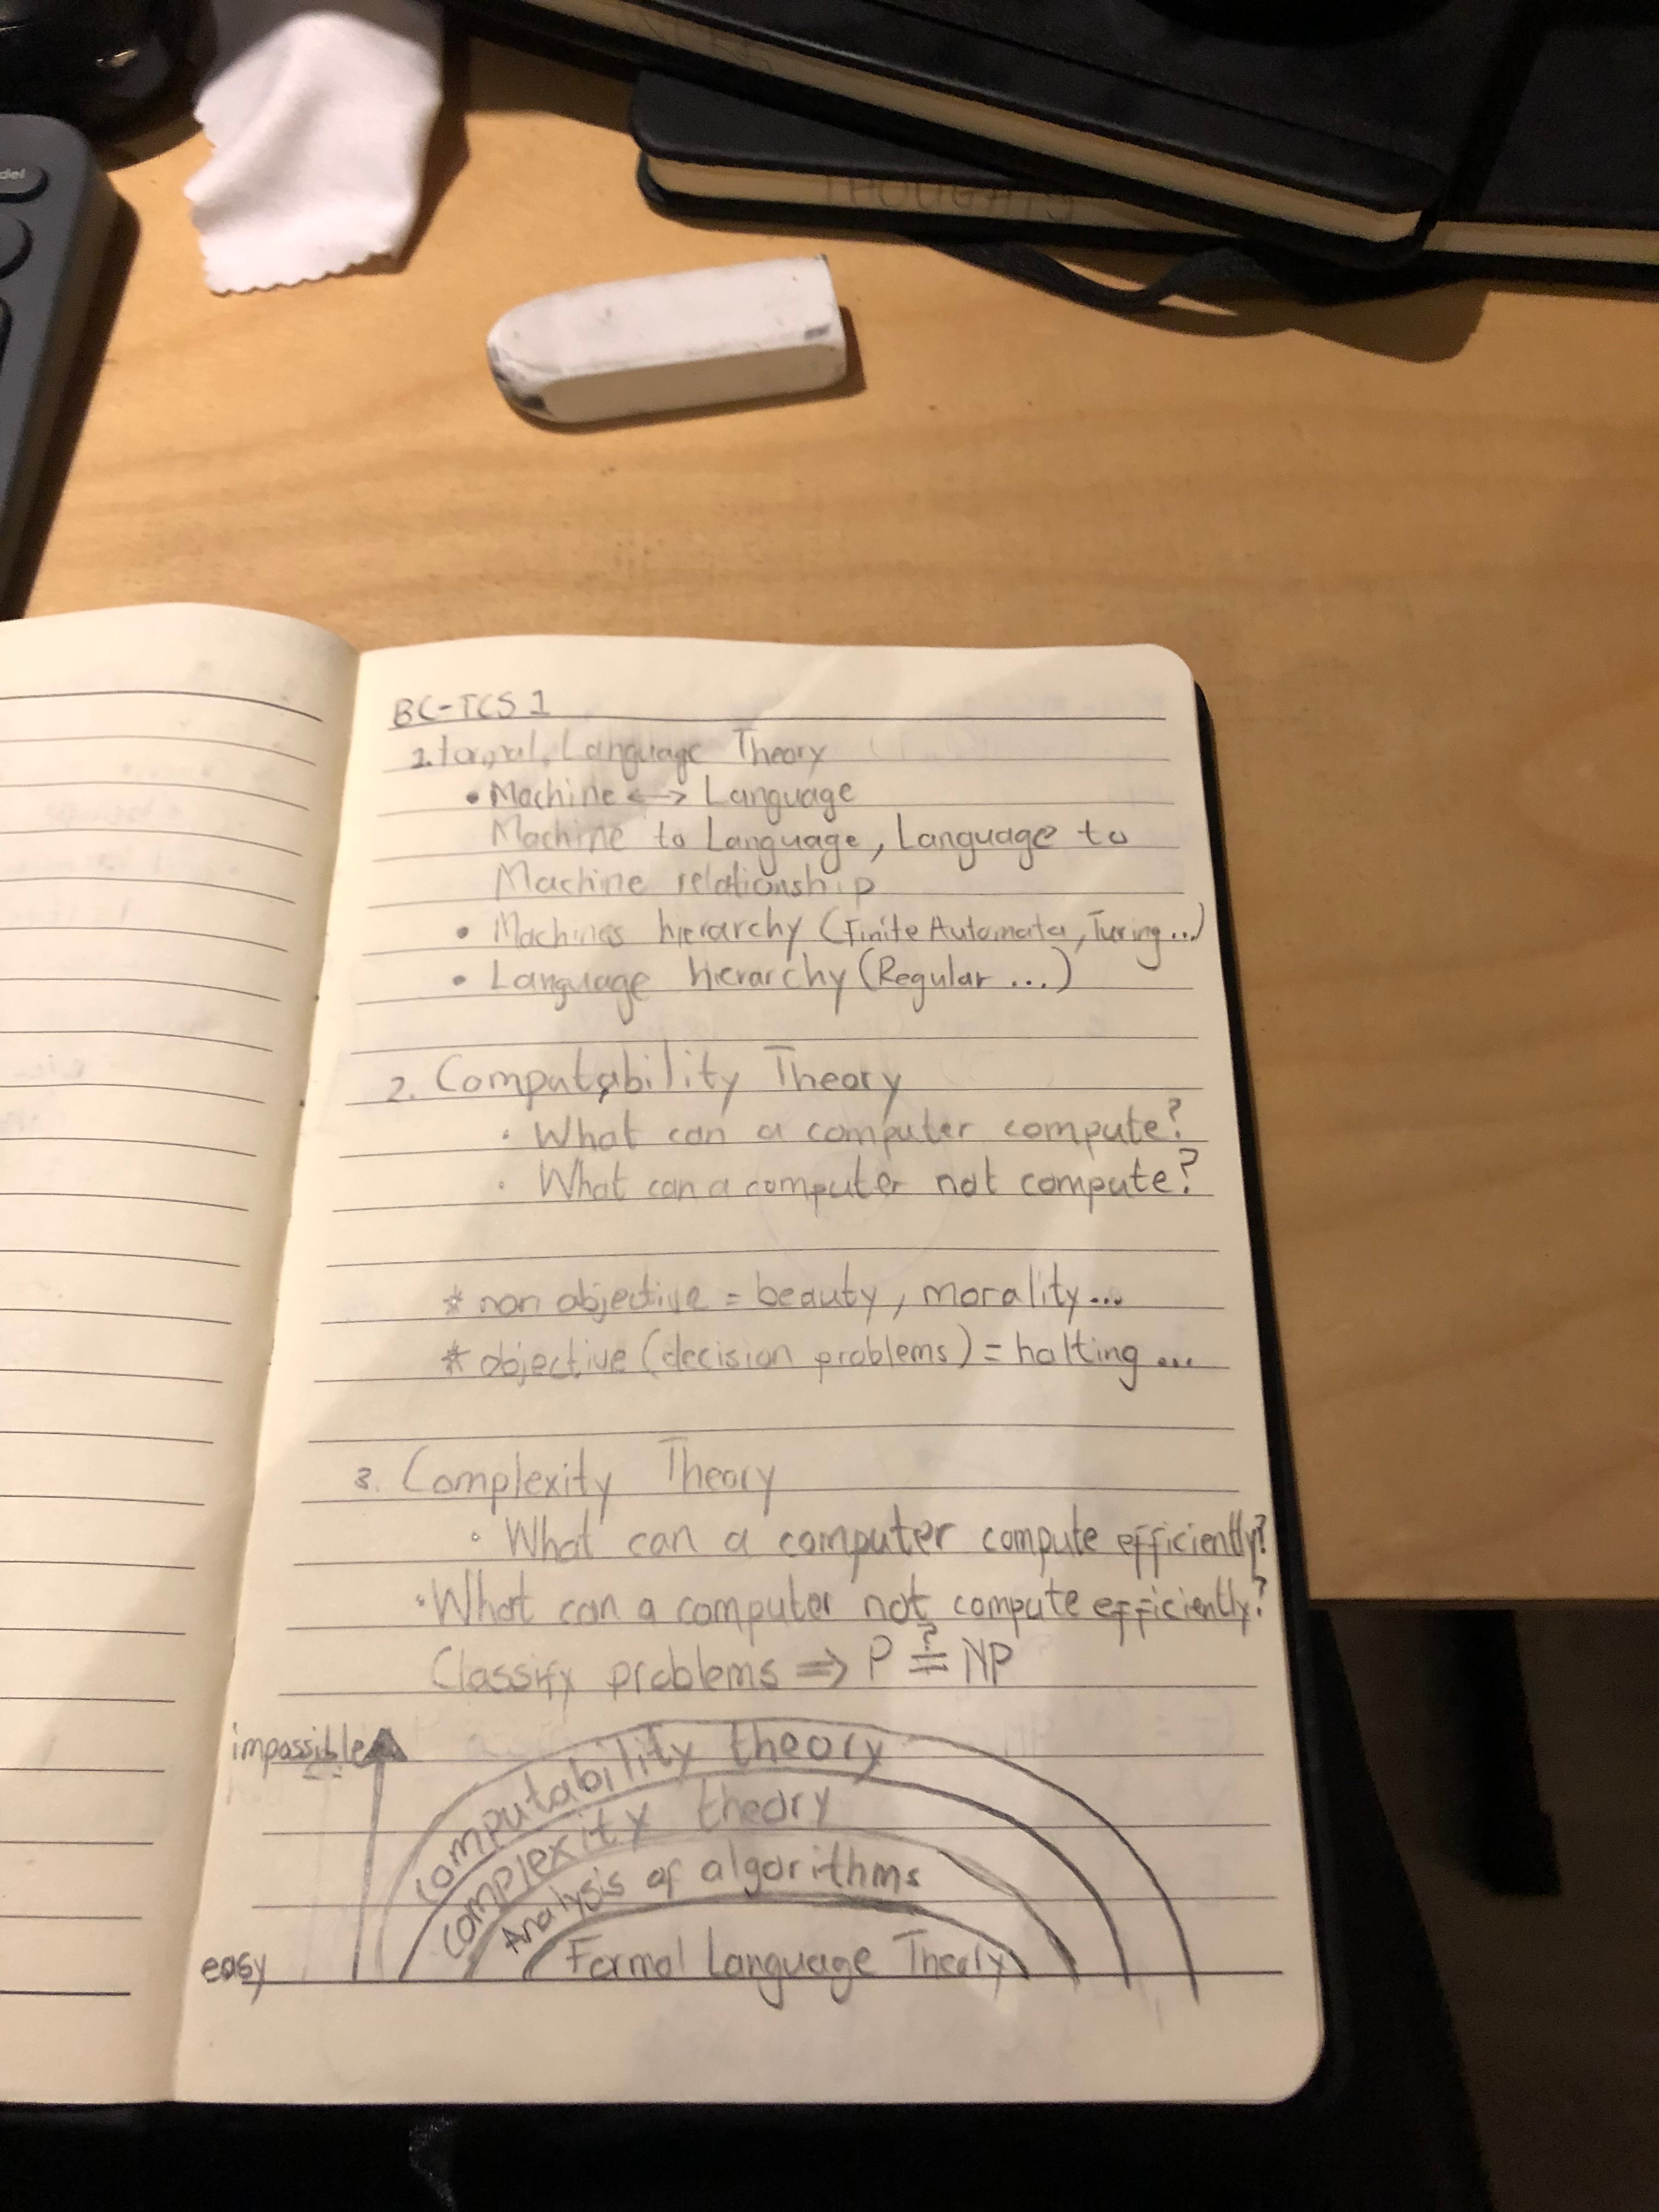 del
THOUGHTS
BC-TCS 1
1. Formal Language Theory
• Machine <-> Language
Machine to Language, Language to
Machine relationship
• Machines hierarchy (Finite Automata, Turing...)
• Language hierarchy (Regular ...)
2. Computability Theory
• What can a computer compute?
• What can a computer not compute?
* non objective = beauty, morality...
* objective (decision problems) = halting ...
3. Complexity Theory
• What can a computer compute efficiently?
• What can a computer not compute efficiently?
Classify problems ⇒ P ≟ NP
impossible
computability theory
complexity theory
Analysis of algorithms
Formal Language Theory
easy